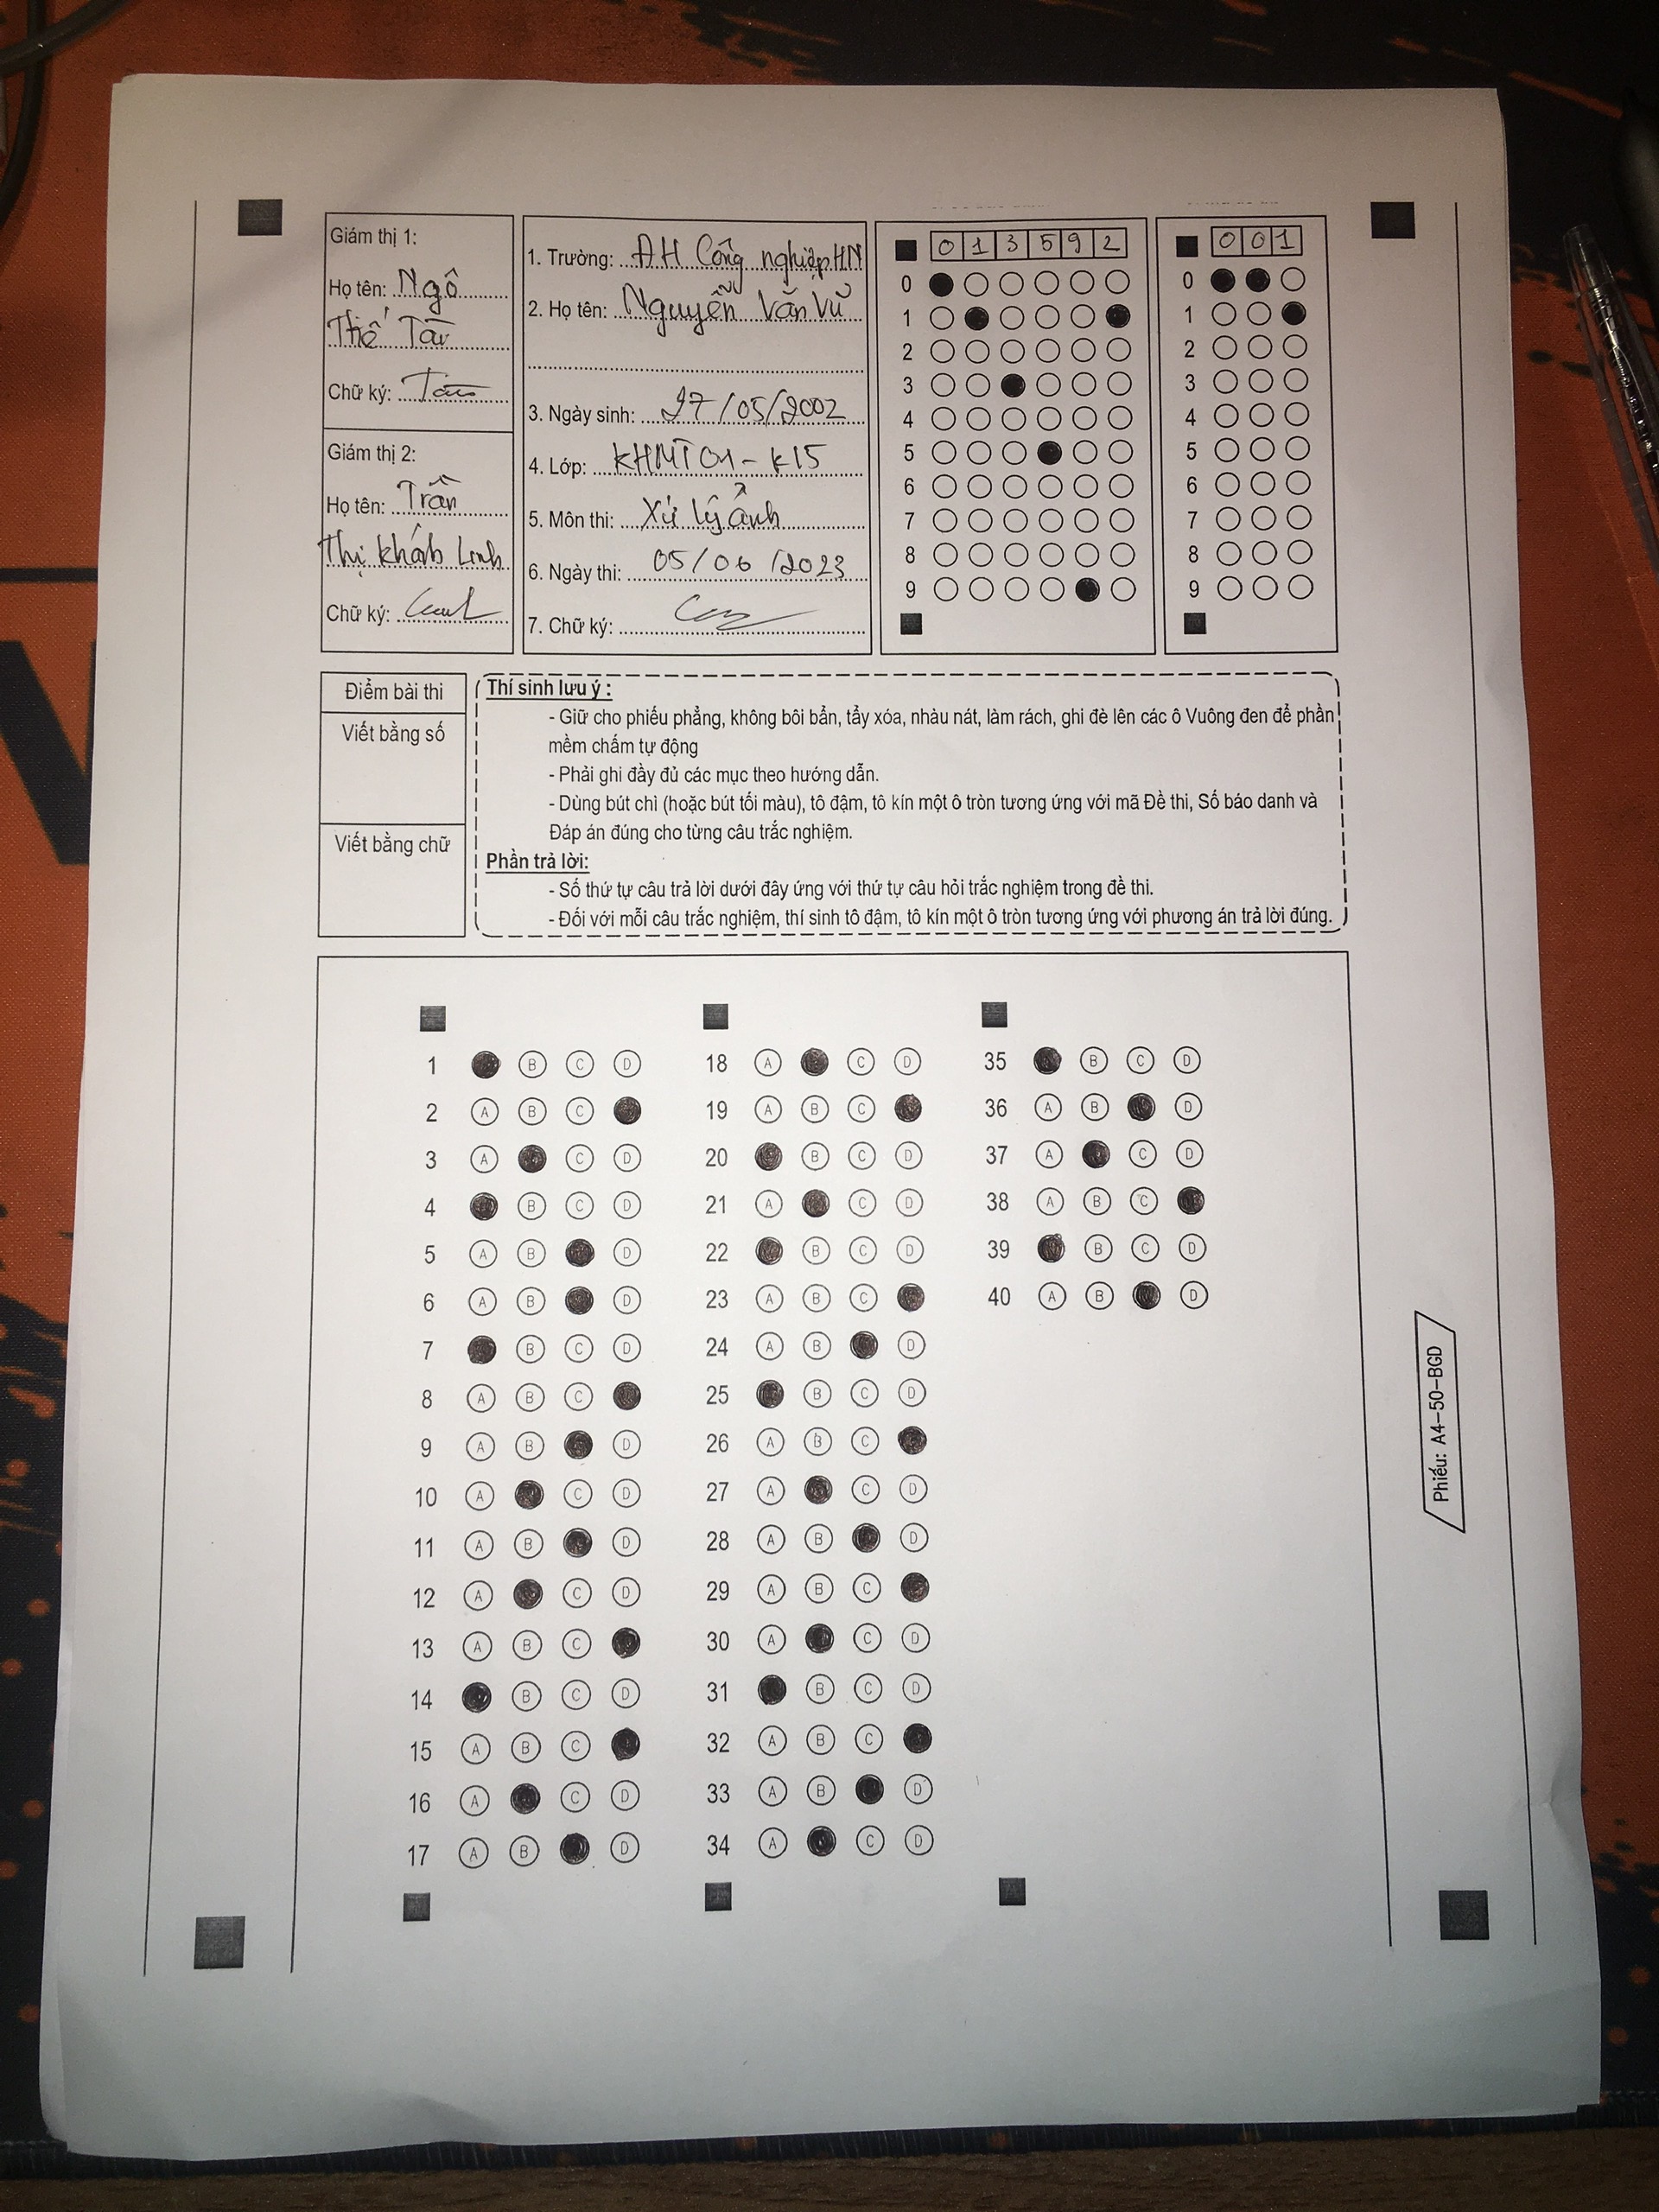 Giám thị 1:
Họ tên: Ngô
Thế Tài
Chữ ký:
Giám thị 2:
Họ tên: Trần
Thị Khánh Linh
Chữ ký:
1. Trường: ĐH Công nghiệp HN
2. Họ tên: Nguyễn Văn Vũ
3. Ngày sinh: 27/05/2002
4. Lớp: KHMT01-K15
5. Môn thi: Xử lý ảnh
6. Ngày thi: 05/06/2023
7. Chữ ký:
0 1 3 5 9 2
0
1
2
3
4
5
6
7
8
9
0 0 1
0
1
2
3
4
5
6
7
8
9
Điểm bài thi
Viết bằng số
Viết bằng chữ
Thí sinh lưu ý :
- Giữ cho phiếu phẳng, không bôi bẩn, tẩy xóa, nhàu nát, làm rách, ghi đè lên các ô Vuông đen để phần
mềm chấm tự động
- Phải ghi đầy đủ các mục theo hướng dẫn.
- Dùng bút chì (hoặc bút tối màu), tô đậm, tô kín một ô tròn tương ứng với mã Đề thi, Số báo danh và
Đáp án đúng cho từng câu trắc nghiệm.
Phần trả lời:
- Số thứ tự câu trả lời dưới đây ứng với thứ tự câu hỏi trắc nghiệm trong đề thi.
- Đối với mỗi câu trắc nghiệm, thí sinh tô đậm, tô kín một ô tròn tương ứng với phương án trả lời đúng.
1 B C D
2 A B C
3 A C D
4 B C D
5 A B D
6 A B D
7 B C D
8 A B C
9 A B D
10 A C D
11 A B D
12 A C D
13 A B C
14 B C D
15 A B C
16 A C D
17 A B D
18 A C D
19 A B C
20 B C D
21 A C D
22 B C D
23 A B C
24 A B D
25 B C D
26 A B C
27 A C D
28 A B D
29 A B C
30 A C D
31 B C D
32 A B C
33 A B D
34 A C D
35 B C D
36 A B D
37 A C D
38 A B C
39 B C D
40 A B D
Phiếu: A4-50-BGD